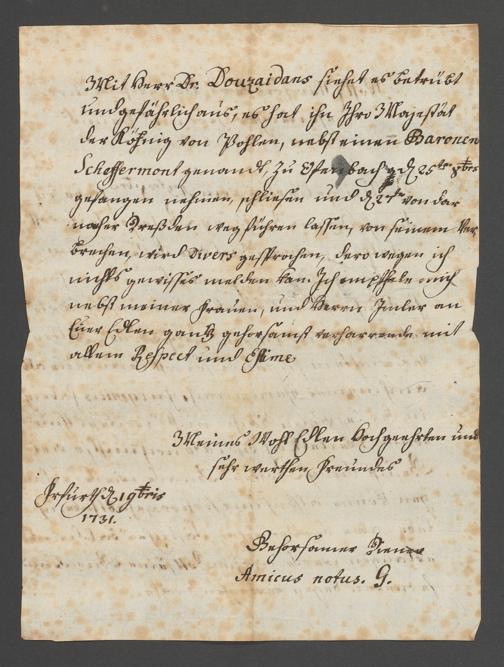 Mit Herr Dr. Douzaidans siehet es betrübt
und gefährlich aus, es hat ihn Ihro Majestät
der Köhnig von Pohlen, nebst einen Baronen
Scheffermont genandt, zu d 25ten 8bris
gefangen nehmen, schliesen und d 27ten von dar
nacher Dreßden wegführen lassen, von seinem Ver
brechen, wird divers gesprochen, derowegen ich
nichts gewisses melden kan. Ich empfehle mich
nebst meiner Frauen, und Herrn Imler an
Euer Edlen gantz gehorsamst verharrende mit
allem Respect und Estime
Meines Wohl Edlen Hochgeehrten und
sehr werthen Freundes
Erfurth d 1 9bris
1731.
Gehorsamer Diener
Amicus notus. G.